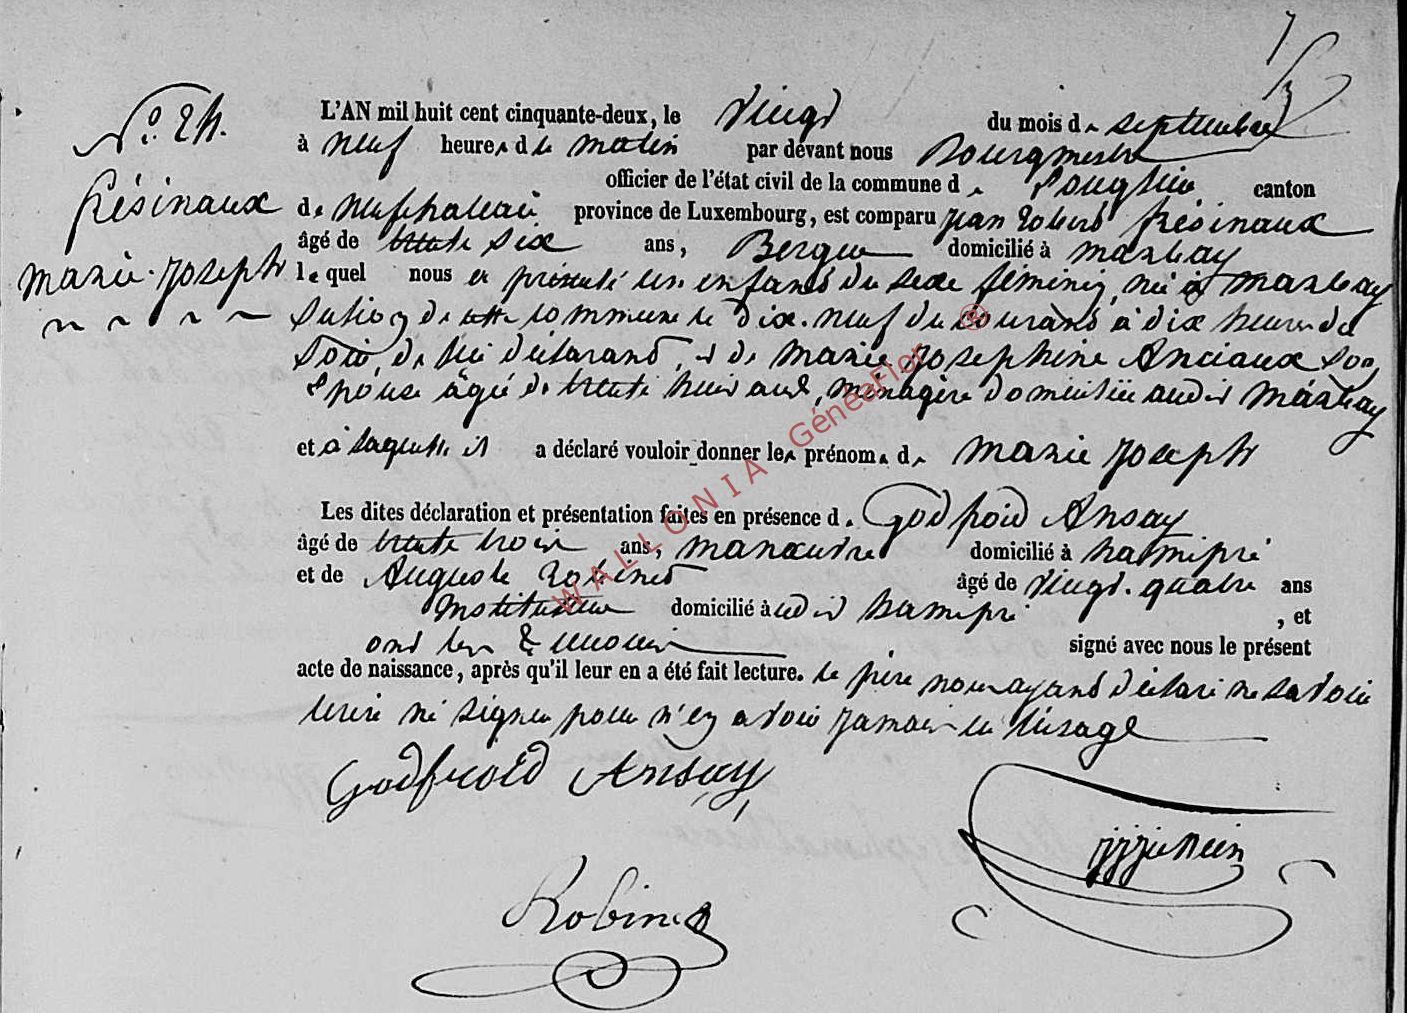 N.º 24.
Frésinaux
Marie-Joseph
L'AN mil huit cent cinquante-deux, le vingt du mois de septembre
à neuf heures du matin par devant nous Bourgmestre
officier de l'état civil de la commune de canton
de Neufchateau province de Luxembourg, est comparu Jean Robert Frésinaux
âgé de trente six ans, Berger domicilié à Marbay
lequel nous a présenté un enfant du sexe féminin, né à Marbay
section de cette commune le dix-neuf du courant à dix heures du
soir, de lui déclarant, et de Marie Josephine Anciaux son
épouse âgée de trente huit ans, ménagère domiciliée audit Marbay
et à laquelle il a déclaré vouloir donner les prénoms de Marie Joseph
Les dites déclaration et présentation faites en présence de Godfroid Ansay
âgé de trente trois ans, manœuvre domicilié à hamipré
et de Auguste Robinet âgé de vingt-quatre ans
Instituteur domicilié audit hamipré, et
ont les témoins signé avec nous le présent
acte de naissance, après qu'il leur en a été fait lecture. le père nous ayant déclaré ne savoir
écrire ni signer pour n'en avoir jamais eu l'usage
Godfroid Ansay
Robinet
WALLONIA GénéaFlor ®